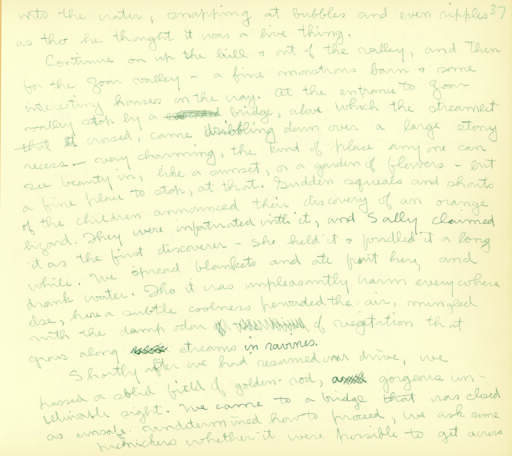 into the water, snapping at bubbles and even ripples 37
as tho he thought it was a live thing.
Continue on up the hill & out of the valley, and then
for the Zoar valley - a fine monstrous barn & some
interesting houses on the way. At the entrance to Zoar
valley stop by a bridge, above which the streamlet
that it crossed, came dribbling down over a large stony
recess - very charming, the kind of place any one can
see beauty in, like a sunset, or a garden of flowers - but
a fine place to stop, at that. Sudden squeals and shouts
of the children announced their discovery of an orange
lizard. They were infatuated with it, and Sally claimed
it as the first discoverer - she held it & fondled it a long
while. We spread blankets and ate fruit here, and
drank water. Tho it was unpleasantly warm everywhere
else, here a subtle coolness pervaded the air, mingled
with the damp odor of vegetation that
grows along streams in ravines.
Shortly after we had resumed our drive, we
passed a solid field of golden-rod, gorgeous un-
believable sight. We came to a bridge that was closed
as unsafe. Undetermined how to proceed, we ask some
picnickers whether it were possible to get across